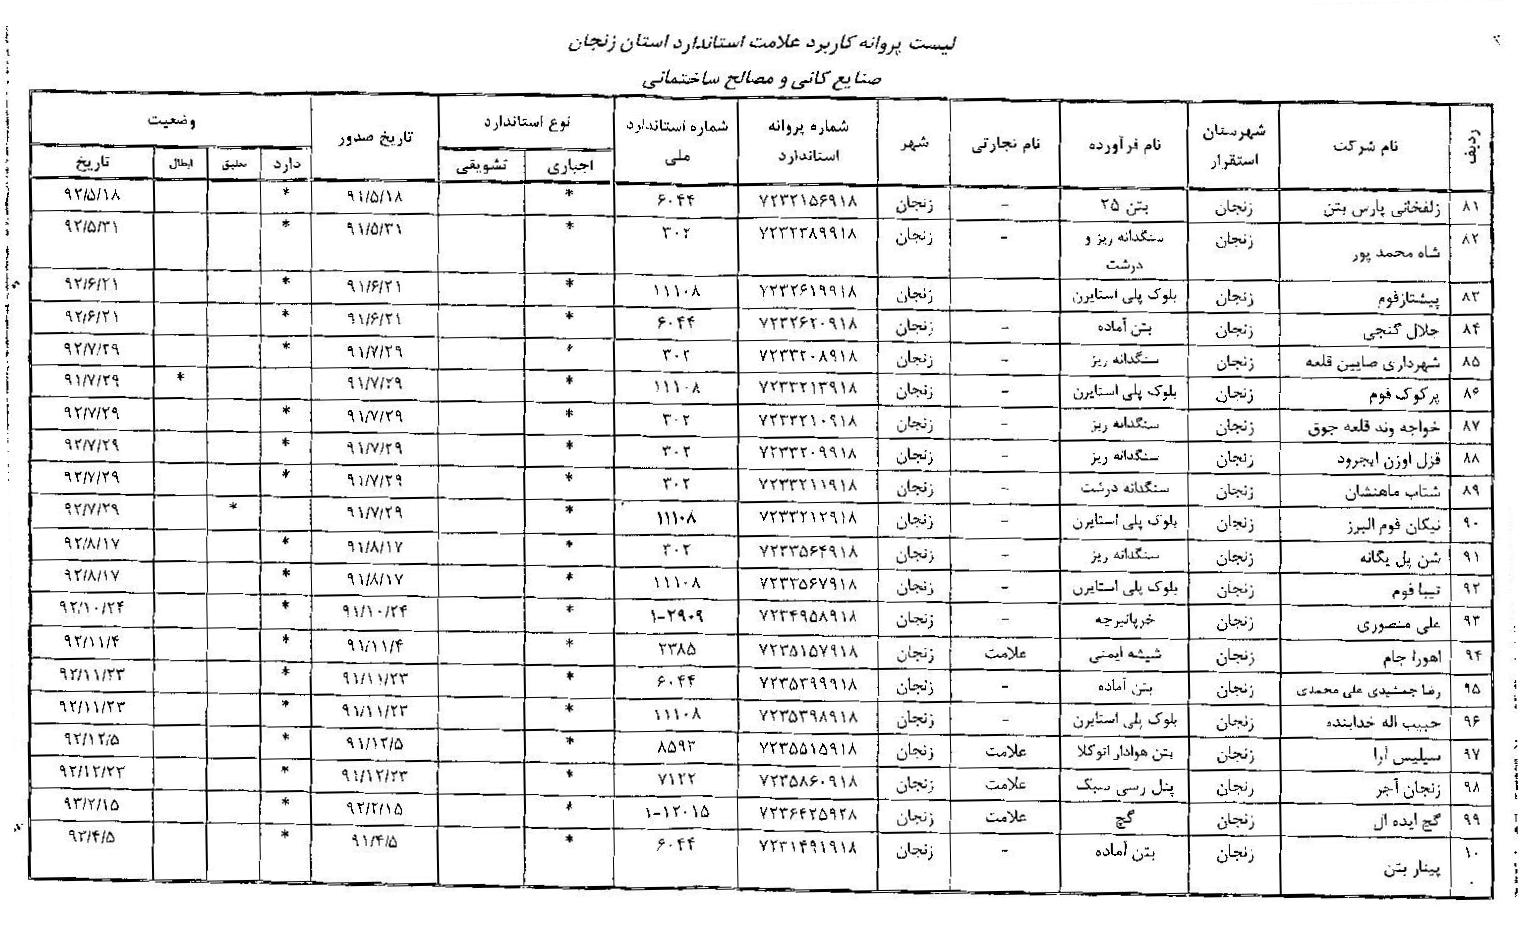 لیست پروانه کاربرد علامت استاندارد استان زنجان
صنایع کانی و مصالح ساختمانی
ردیف نام شرکت شهرستان استقرار نام فرآورده نام تجارتی شهر شماره پروانه استاندارد شماره استاندارد ملی نوع استاندارد تاریخ صدور وضعیت
اجباری تشویقی دارد تعلیق ابطال تاریخ
۸۱ زلفخانی پارس بتن زنجان بتن ۲۵ - زنجان ۷۲۳۲۱۵۶۹۱۸ ۶۰۴۴ * ۹۱/۵/۱۸ * ۹۲/۵/۱۸
۸۲ شاه محمد پور زنجان سنگدانه ریز و درشت - زنجان ۷۲۳۲۳۸۹۹۱۸ ۳۰۲ * ۹۱/۵/۳۱ * ۹۲/۵/۳۱
۸۳ پیشتازفوم زنجان بلوک پلی استایرن زنجان ۷۲۳۲۶۱۹۹۱۸ ۱۱۱۰۸ * ۹۱/۶/۲۱ * ۹۲/۶/۲۱
۸۴ جلال گنجی زنجان بتن آماده - زنجان ۷۲۳۲۶۲۰۹۱۸ ۶۰۴۴ * ۹۱/۶/۲۱ * ۹۲/۶/۲۱
۸۵ شهرداری صایین قلعه زنجان سنگدانه ریز - زنجان ۷۲۳۳۲۰۸۹۱۸ ۳۰۲ * ۹۱/۷/۲۹ * ۹۲/۷/۲۹
۸۶ پرکوک فوم زنجان بلوک پلی استایرن - زنجان ۷۲۳۳۲۱۳۹۱۸ ۱۱۱۰۸ * ۹۱/۷/۲۹ * ۹۱/۷/۲۹
۸۷ خواجه وند قلعه جوق زنجان سنگدانه ریز - زنجان ۷۲۳۳۲۱۰۹۱۸ ۳۰۲ * ۹۱/۷/۲۹ * ۹۲/۷/۲۹
۸۸ قزل اوزن ایجرود زنجان سنگدانه ریز - زنجان ۷۲۳۳۲۰۹۹۱۸ ۳۰۲ * ۹۱/۷/۲۹ * ۹۲/۷/۲۹
۸۹ شتاب ماهنشان زنجان سنگدانه درشت - زنجان ۷۲۳۳۲۱۱۹۱۸ ۳۰۲ * ۹۱/۷/۲۹ * ۹۲/۷/۲۹
۹۰ نیکان فوم البرز زنجان بلوک پلی استایرن - زنجان ۷۲۳۳۲۱۲۹۱۸ ۱۱۱۰۸ * ۹۱/۷/۲۹ * ۹۲/۷/۲۹
۹۱ شن پل یگانه زنجان سنگدانه ریز - زنجان ۷۲۳۳۵۶۴۹۱۸ ۳۰۲ * ۹۱/۸/۱۷ * ۹۲/۸/۱۷
۹۲ تیبا فوم زنجان بلوک پلی استایرن - زنجان ۷۲۳۳۵۶۷۹۱۸ ۱۱۱۰۸ * ۹۱/۸/۱۷ * ۹۲/۸/۱۷
۹۳ علی منصوری زنجان خرپاتیرچه - زنجان ۷۲۳۴۹۵۸۹۱۸ ۱-۲۹۰۹ * ۹۱/۱۰/۲۴ * ۹۲/۱۰/۲۴
۹۴ اهورا جام زنجان شیشه ایمنی علامت زنجان ۷۲۳۵۱۵۷۹۱۸ ۲۳۸۵ * ۹۱/۱۱/۴ * ۹۲/۱۱/۴
۹۵ رضا جمشیدی علی محمدی زنجان بتن آماده - زنجان ۷۲۳۵۳۹۹۹۱۸ ۶۰۴۴ * ۹۱/۱۱/۲۳ * ۹۲/۱۱/۲۳
۹۶ حبیب اله خدابنده زنجان بلوک پلی استایرن - زنجان ۷۲۳۵۳۹۸۹۱۸ ۱۱۱۰۸ * ۹۱/۱۱/۲۳ * ۹۲/۱۱/۲۳
۹۷ سیلیس آرا زنجان بتن هوادار اتوکلا علامت زنجان ۷۲۳۵۵۱۵۹۱۸ ۸۵۹۳ * ۹۱/۱۲/۵ * ۹۲/۱۲/۵
۹۸ زنجان آجر زنجان پنل رسی سبک علامت زنجان ۷۲۳۵۸۶۰۹۱۸ ۷۱۲۲ * ۹۱/۱۲/۲۳ * ۹۲/۱۲/۲۳
۹۹ گچ ایده ال زنجان گچ علامت زنجان ۷۲۳۶۴۲۵۹۲۸ ۱-۱۲۰۱۵ * ۹۲/۲/۱۵ * ۹۳/۲/۱۵
۱۰۰ پینار بتن زنجان بتن آماده - زنجان ۷۲۳۱۴۹۱۹۱۸ ۶۰۴۴ * ۹۱/۴/۵ * ۹۲/۴/۵